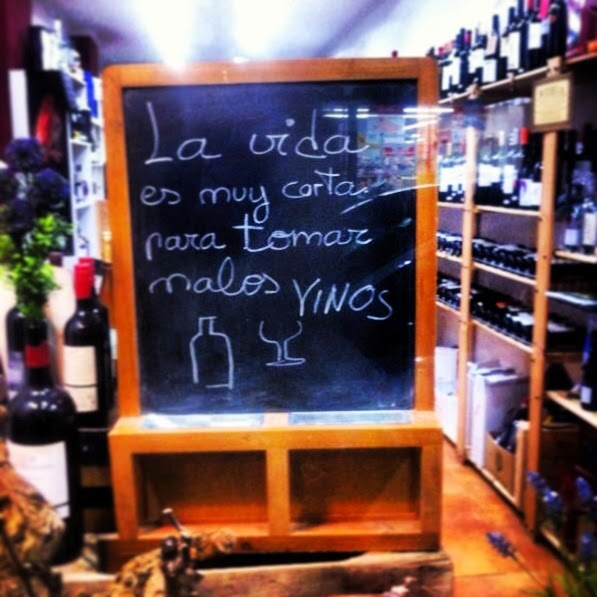 La vida
es muy corta
para tomar
malos VINOS